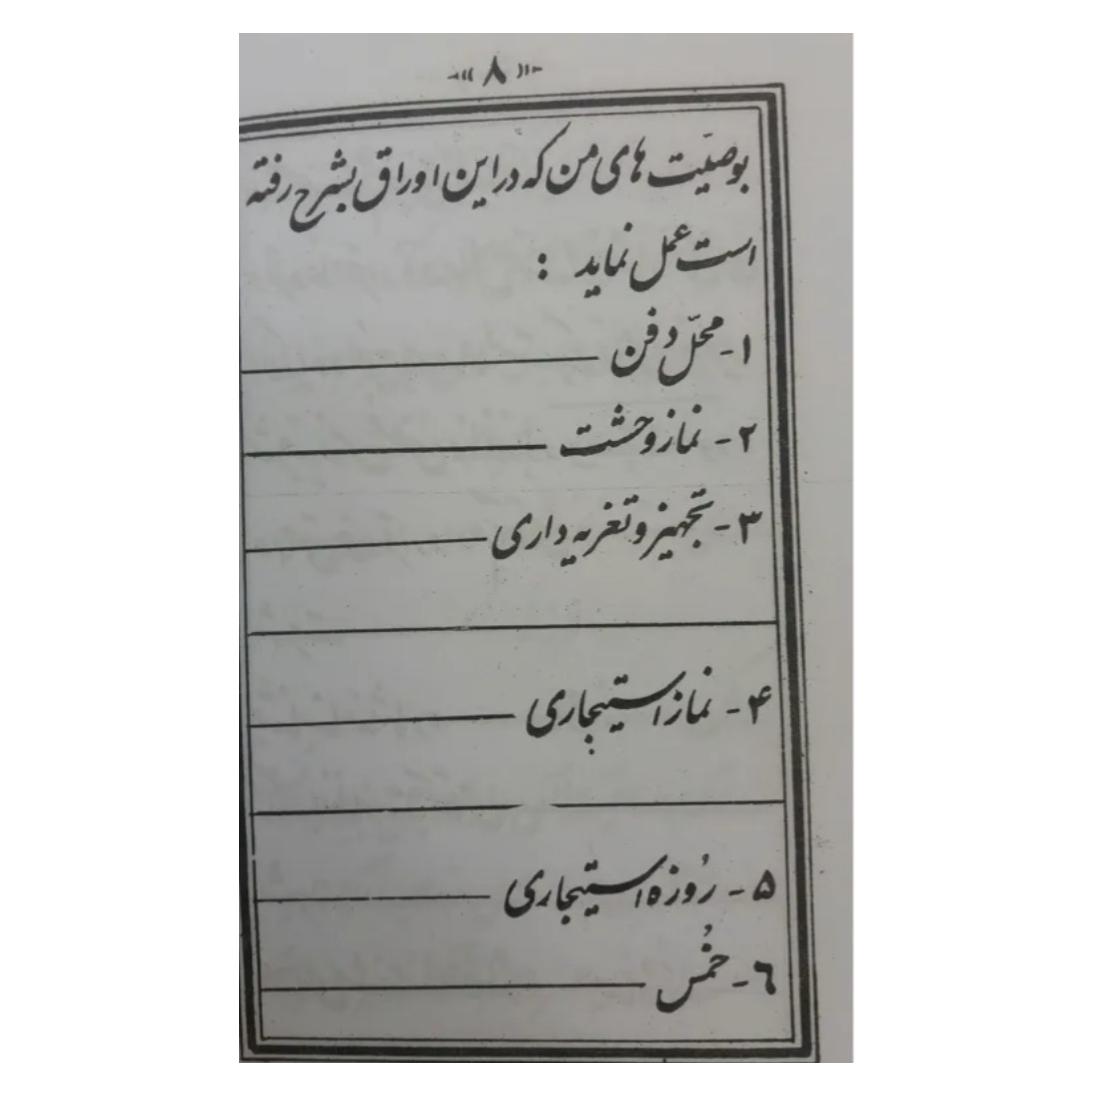 «۸»
بوصیّت های من که در این اوراق بشرح رفته
است عمل نماید :
۱- محلّ دفن
۲- نماز وحشت
۳- تجهیز و تعزیه داری
۴- نماز استیجاری
۵- رُوزه استیجاری
٦- خُمس